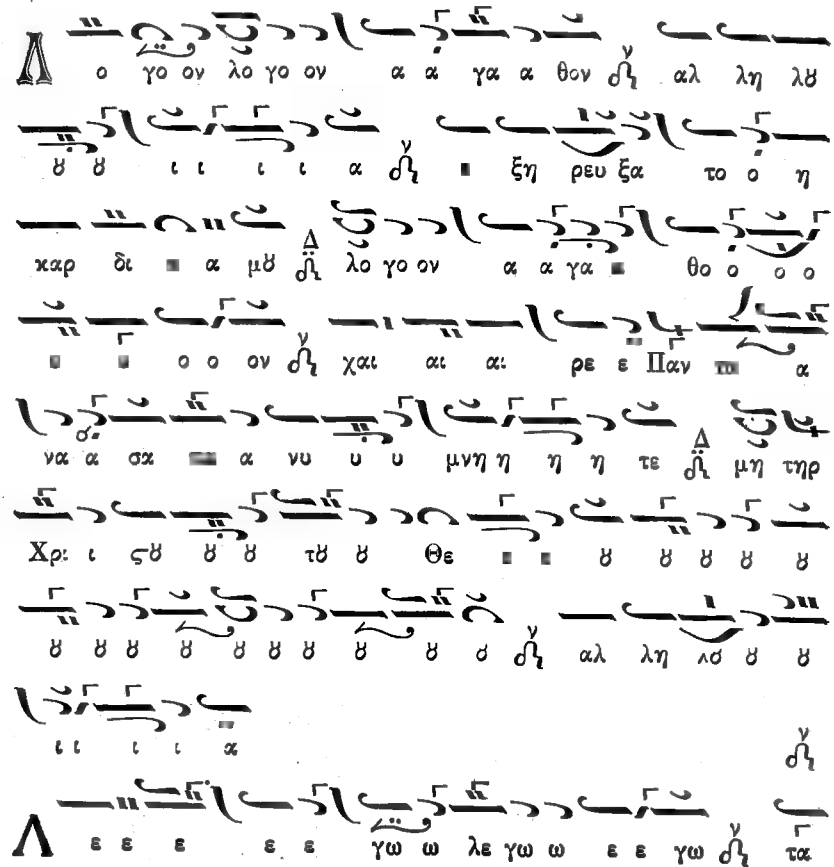 Λ ο γο ον λο γο ον α α γα α θον ν αλ λη λȣ
ȣ ȣ ι ι ι ι α ν ξη ρευ ξα το ο η
καρ δι α μȣ Δ λο γο ον α α γα θο ο ο ο
ο ο ον ν χαι αι αι ρε ε Παν α
να α σα α νυ υ υ μνη η η η τε Δ μη τηρ
Χρι ι ςȣ ȣ ȣ τȣ ȣ Θε ȣ ȣ ȣ ȣ ȣ
ȣ ȣ ȣ ȣ ȣ ȣ ȣ ȣ ȣ ȣ ν αλ λη λȣ ȣ ȣ
ι ι ι ι α ν
Λ ε ε ε ε ε γω ω λε γω ω ε ε γω ν τα